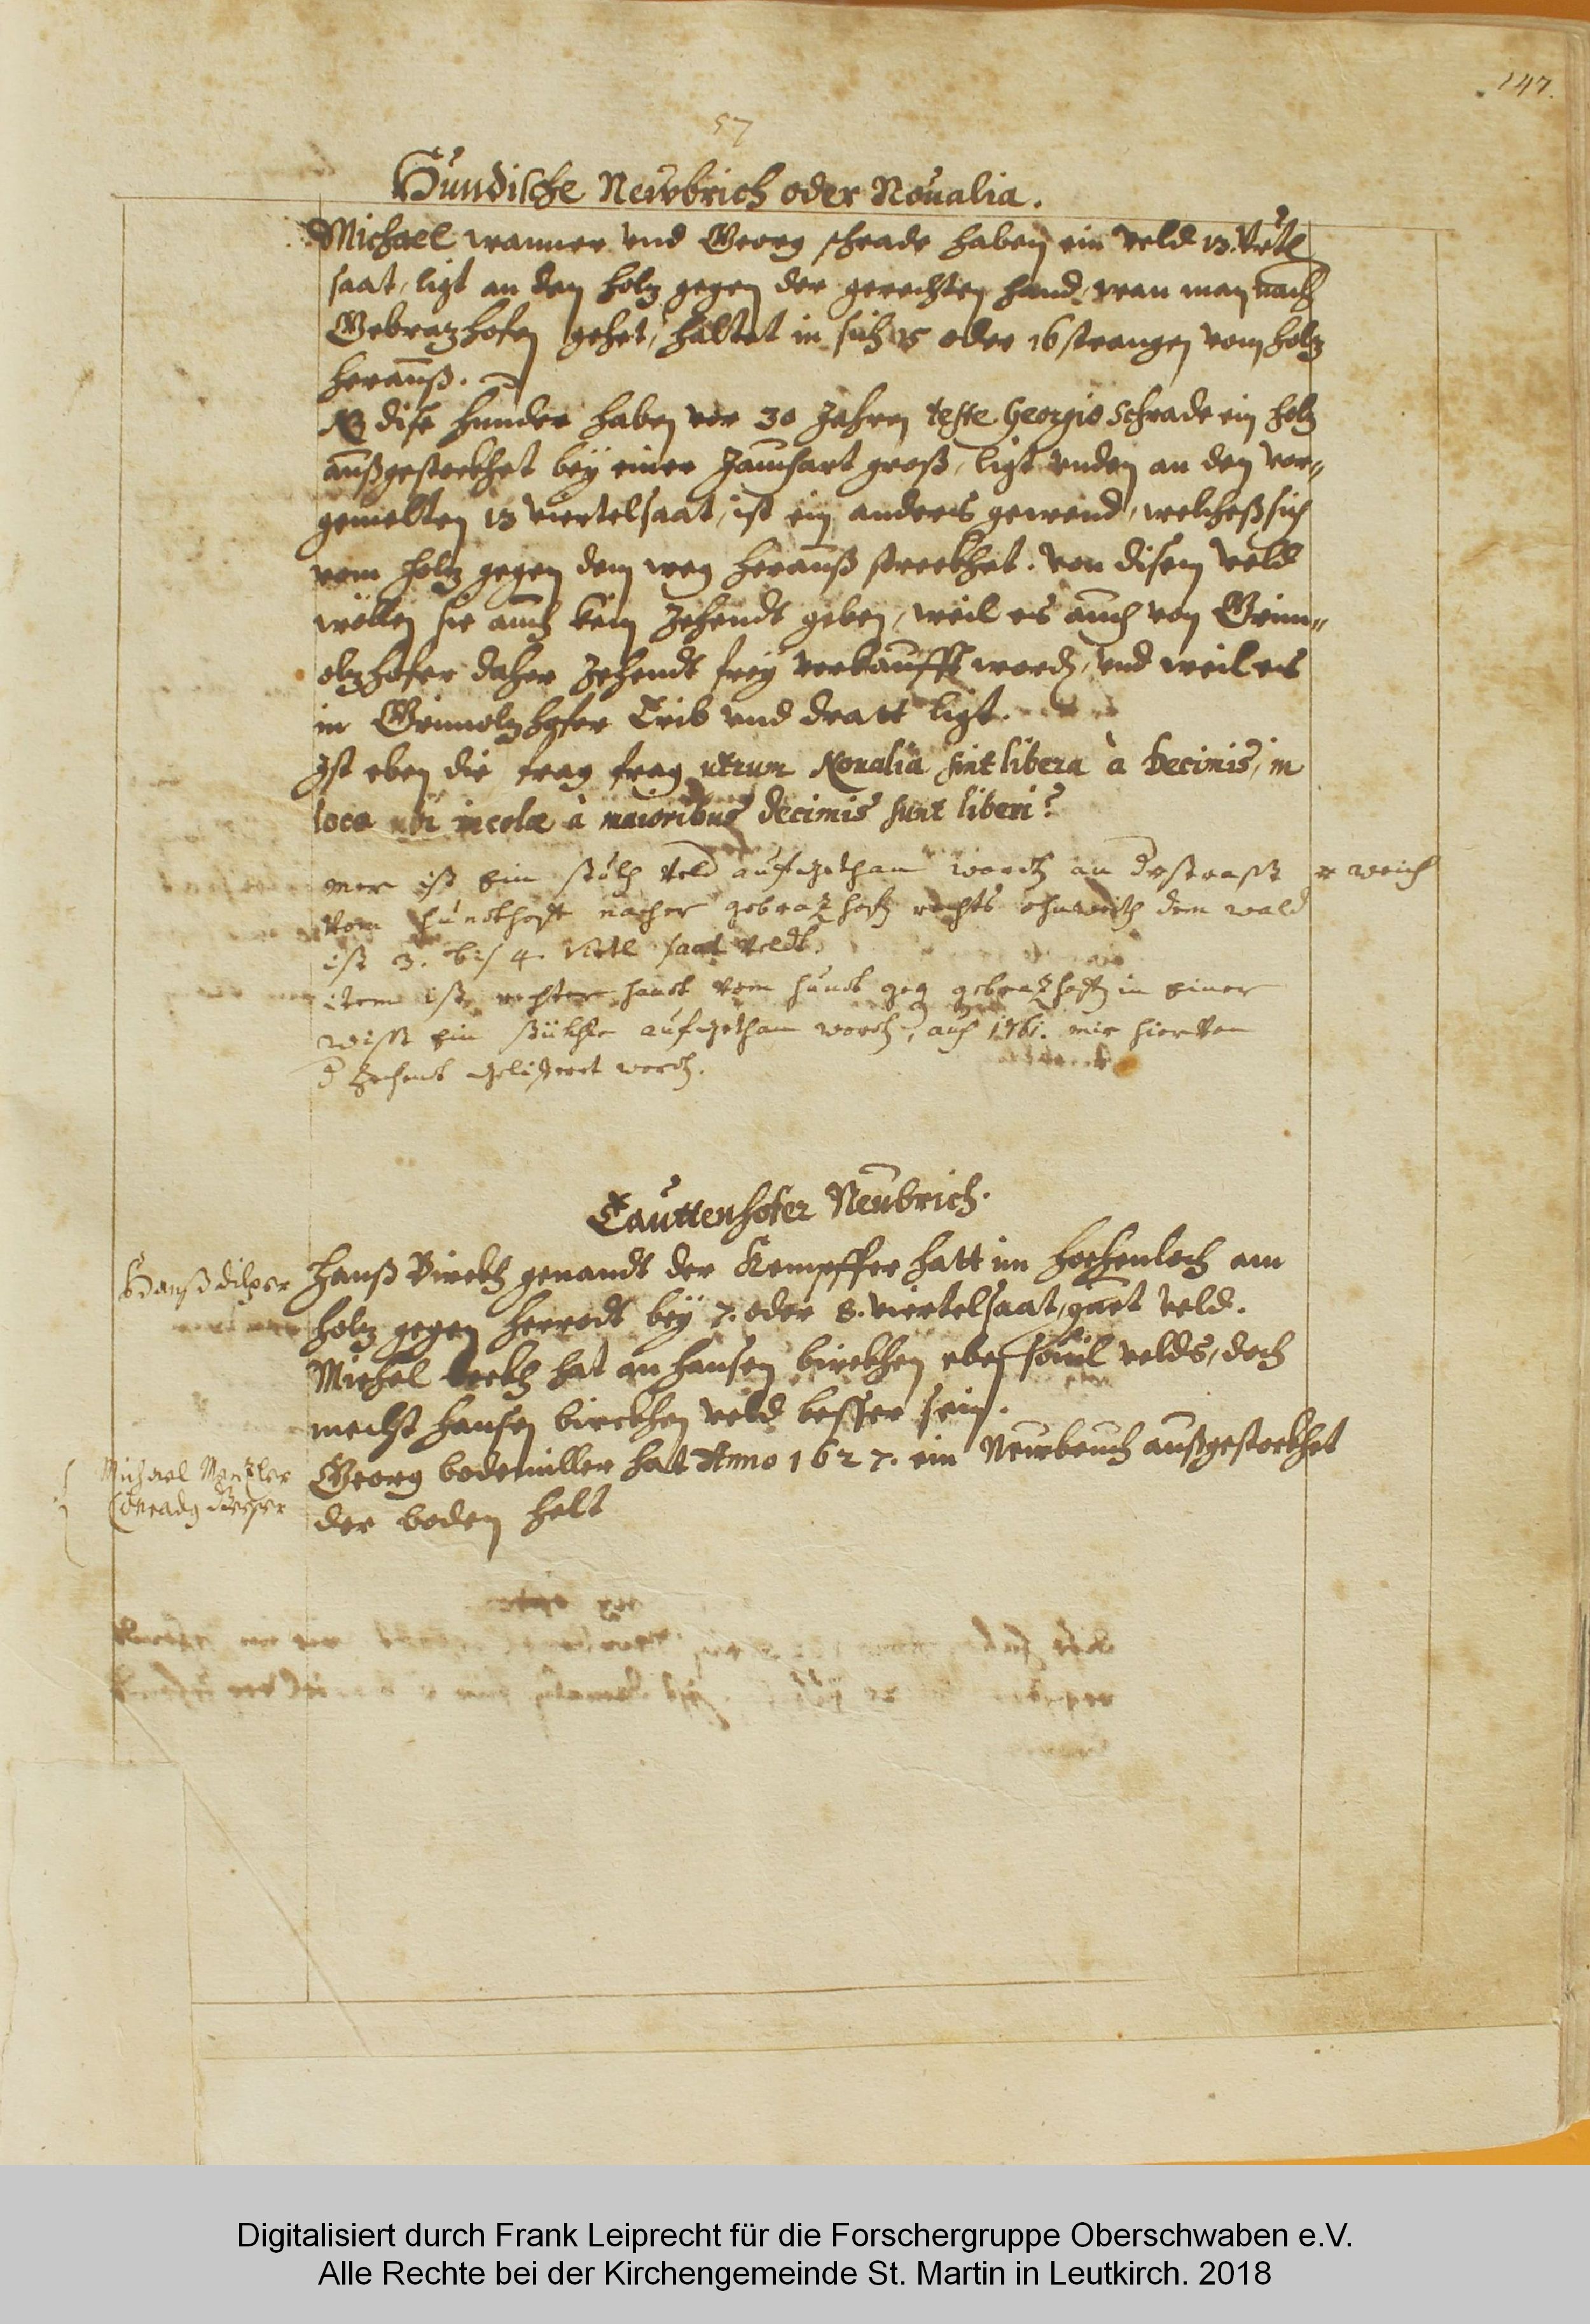 147.
57
Hundische Neẅbrich oder Noualia.
Michael wanner vnd Georg schrade haben ein veld 13. Vrtl
saat, ligt an den holz gegen der gerechten hand, wan man nach
Gebrazhofen gehet, haltet in sich 15 oder 16 strangen vom holz
herauß.
NB dise hunder haben vor 30 Jahren teste Georgio Schrade ein holz
außgestockhet bey einer Jauchart groß, ligt vnden an den vor„
gemelten 13 viertelsaat, ist ein anders gewend, welcheß sich
vom holz gegen dem weg herauß streckhet. von disem veld
wöllen sie auch kein Zehendt geben, weil es auch von Grim„
olzhofer daher zehendt frey verkaufft word, vnd weil es
in Grimolzhofer Trib vnd dratt ligt.
Ist eben die frag frag utrum Noualia sint libera à Decimis, in
loco ubi incolæ à maioribus decimis sunt liberi?
mer ist ein stukh veld aufgethan word an d straß
vom hundthoff nacher gebrazhof rechts ohnweith dem wald
ist 3. bis 4. virtl saat veldt.
item ist rechter handt vom hundt geg gebrazhof in einer
wiß ein stückhle aufgethan word, auch 1761. mir hiervon
d Zehent gelifferet word.
Tauttenhofer Neubrich.
Hanß dilger
Hanß Birckh genandt der Kempffer hatt im hochenloch am
holz gegen herrodt bey 7. oder 8. viertelsaat, guet veld.
Michel hat an hansen birckhen eben souil velds, doch
mecht hansen birckhen veld besser sein.
Michael Mentzler
Georg bodemiller hat Anno 1627. ein Neubruch außgestockhet
der boden helt
Digitalisiert durch Frank Leiprecht für die Forschergruppe Oberschwaben e.V.
Alle Rechte bei der Kirchengemeinde St. Martin in Leutkirch. 2018